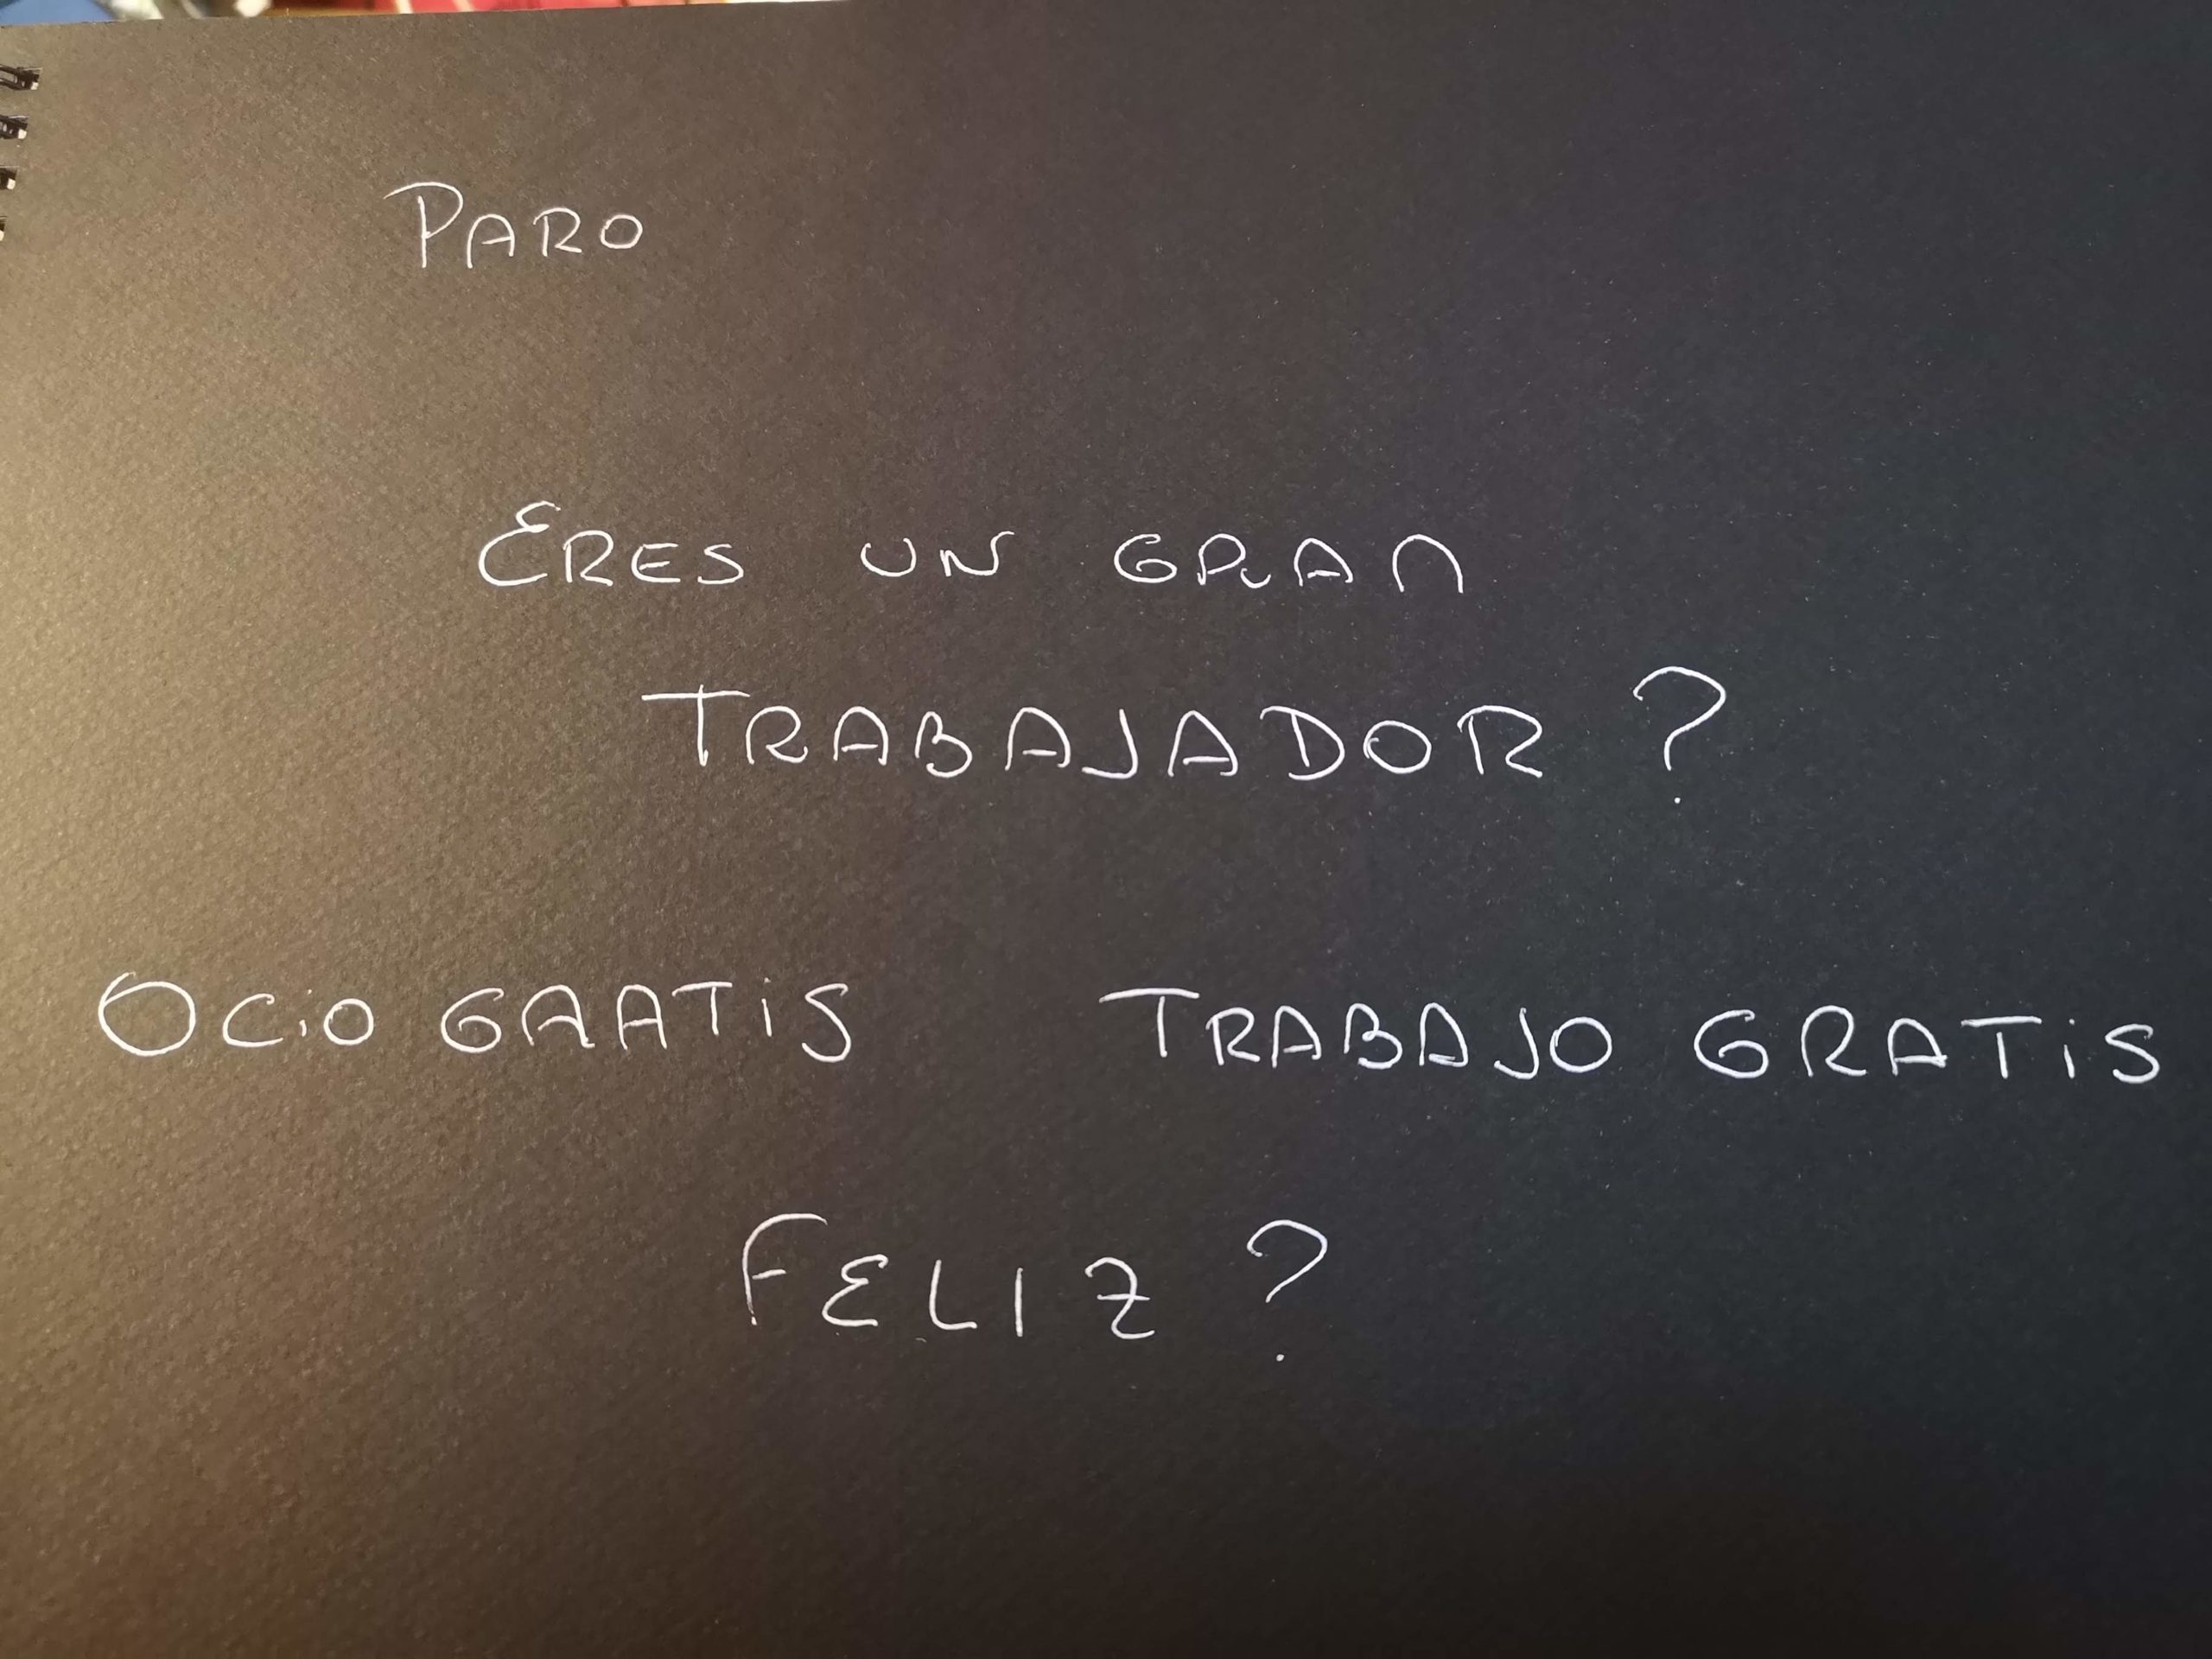 PARO
ERES UN GRAN
TRABAJADOR ?
OCiO GRATiS TRABAJO GRATiS
FELIZ ?